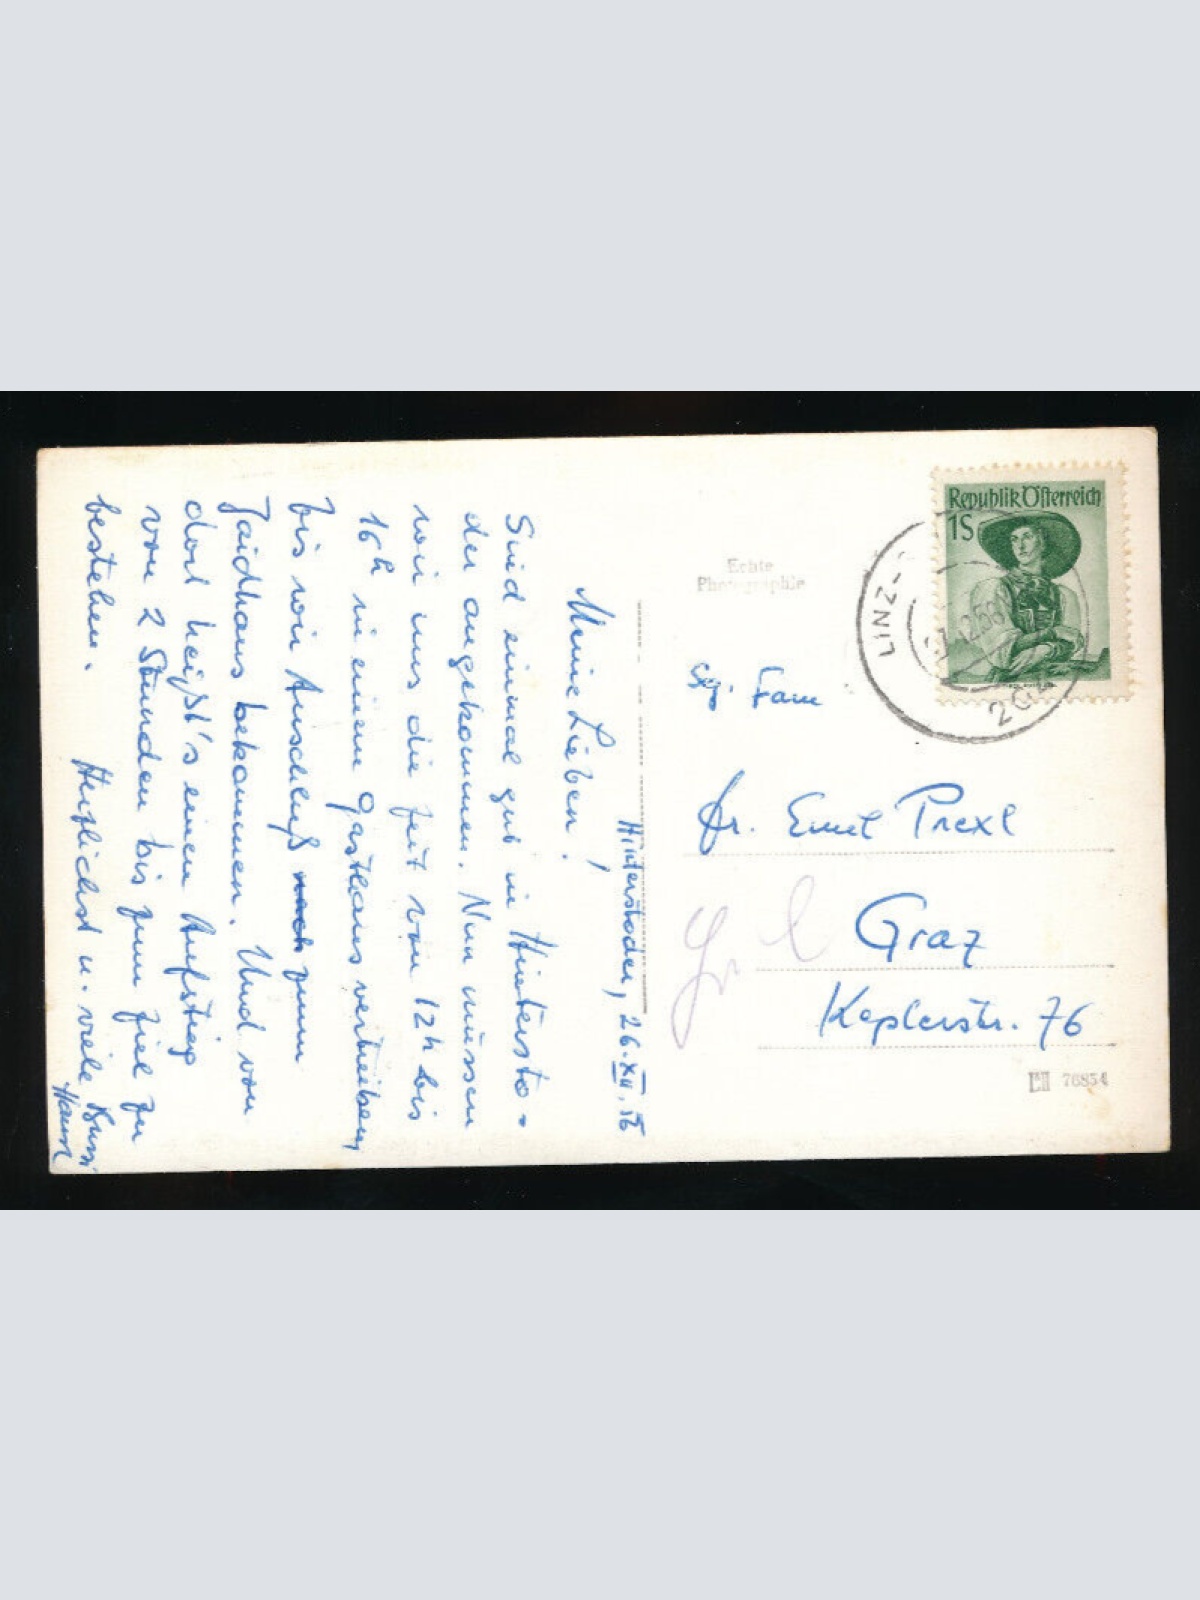 Hinterstoder, 26.XII.56
Meine Lieben!
Sind einmal gut in Hintersto-
der angekommen. Nun müssen
wir uns die Zeit von 12h bis
16h in einem Gasthaus vertreiben,
bis wir Anschluß nach zum
Jaidhaus bekommen. Und von
dort heißt's einen Aufstieg
von 2 Stunden bis zum Ziel zu
bestehen. Herzlichst u. viele Bussi
Republik Österreich
1S
LINZ-
Echte
Photographie
Fam
Dr. Emil Prexl
Graz
Keplerstr. 76
76854